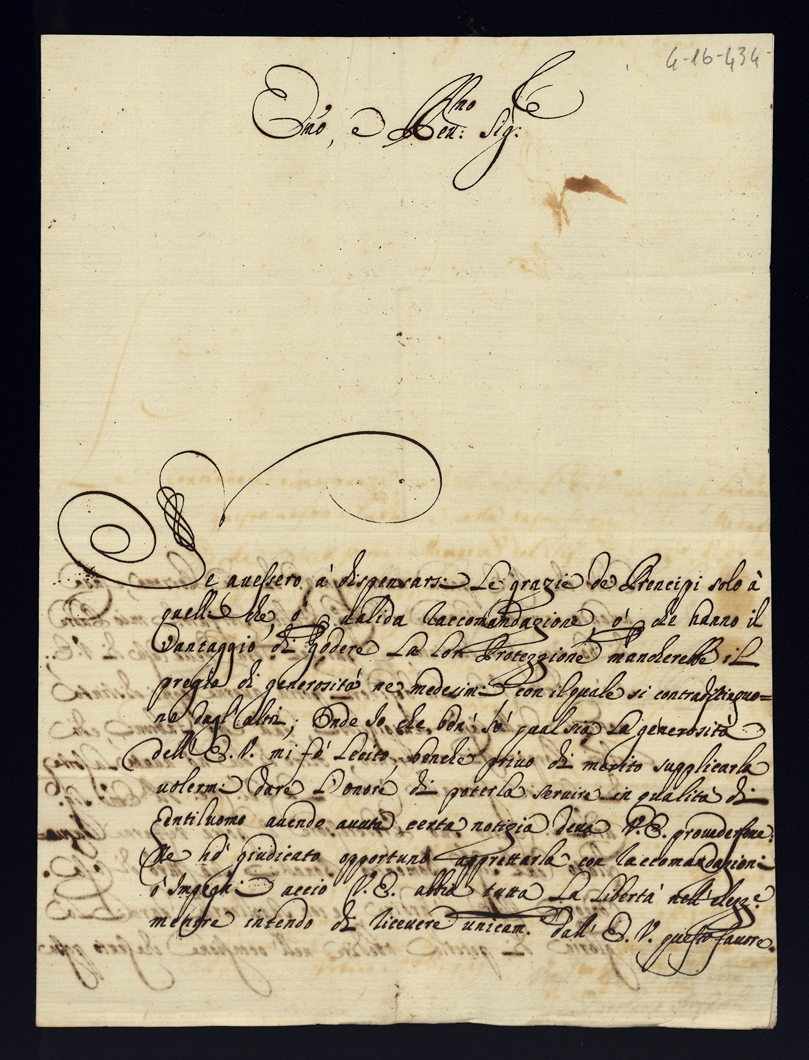 4-16-434
Emo, e Rmo Sig.
Se avessero à dispensarsi Le grazie de Prencipi solo à
quelli che, ò valida raccomandazione, ò che hanno il
Vantaggio di godere La lor Protezzione mancherebbe il
pregio di generosità ne medesimi con il quale si contradistinguo=
no dagl'altri; Onde Io, che ben sò qual sia La generosità
dell'E. V. mi fò Lecito, benche privo di merito supplicarla
volermi dare L'onore di poterla servire in qualità di
Gentiluomo avendo avuta certa notizia deva V. E. provedersene
Ne hò giudicato opportuno apprettarla con raccomandazioni
ò Impegni acciò V. E. abbia tutta La Libertà nell'elegg.e
mentre intendo di ricevere unicam. dall'E. V. questo favore.